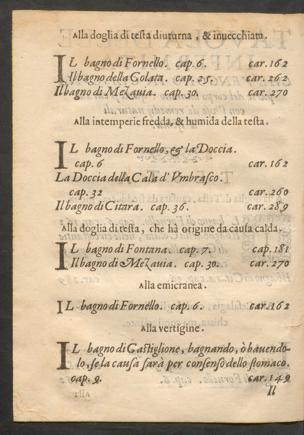 Alla doglia di testa diuturna, & inuecchiata.
IL bagno di Fornello. cap. 6. car. 162
Il bagno della Colata. cap. 25. car. 262
Il bagno di Mezauia. cap. 30. car. 270
Alla intemperie fredda, & humida della testa.
IL bagno di Fornello, & la Doccia.
cap. 6 car. 162
La Doccia della Cala d'Vmbrasco.
cap. 32 car. 260
Il bagno di Citara. cap. 36. car. 289
Alla doglia di testa, che hà origine da causa calda.
IL bagno di Fontana. cap. 7. cap. 181
Il bagno di Mezauia. cap. 30. car. 270
Alla emicranea.
IL bagno di Fornello. cap. 6. car. 162
Alla vertigine.
IL bagno di Castiglione, bagnando, ò bauendo-
lo, se la causa sarà per consenso dello stomaco.
cap. 9. car. 149
Il